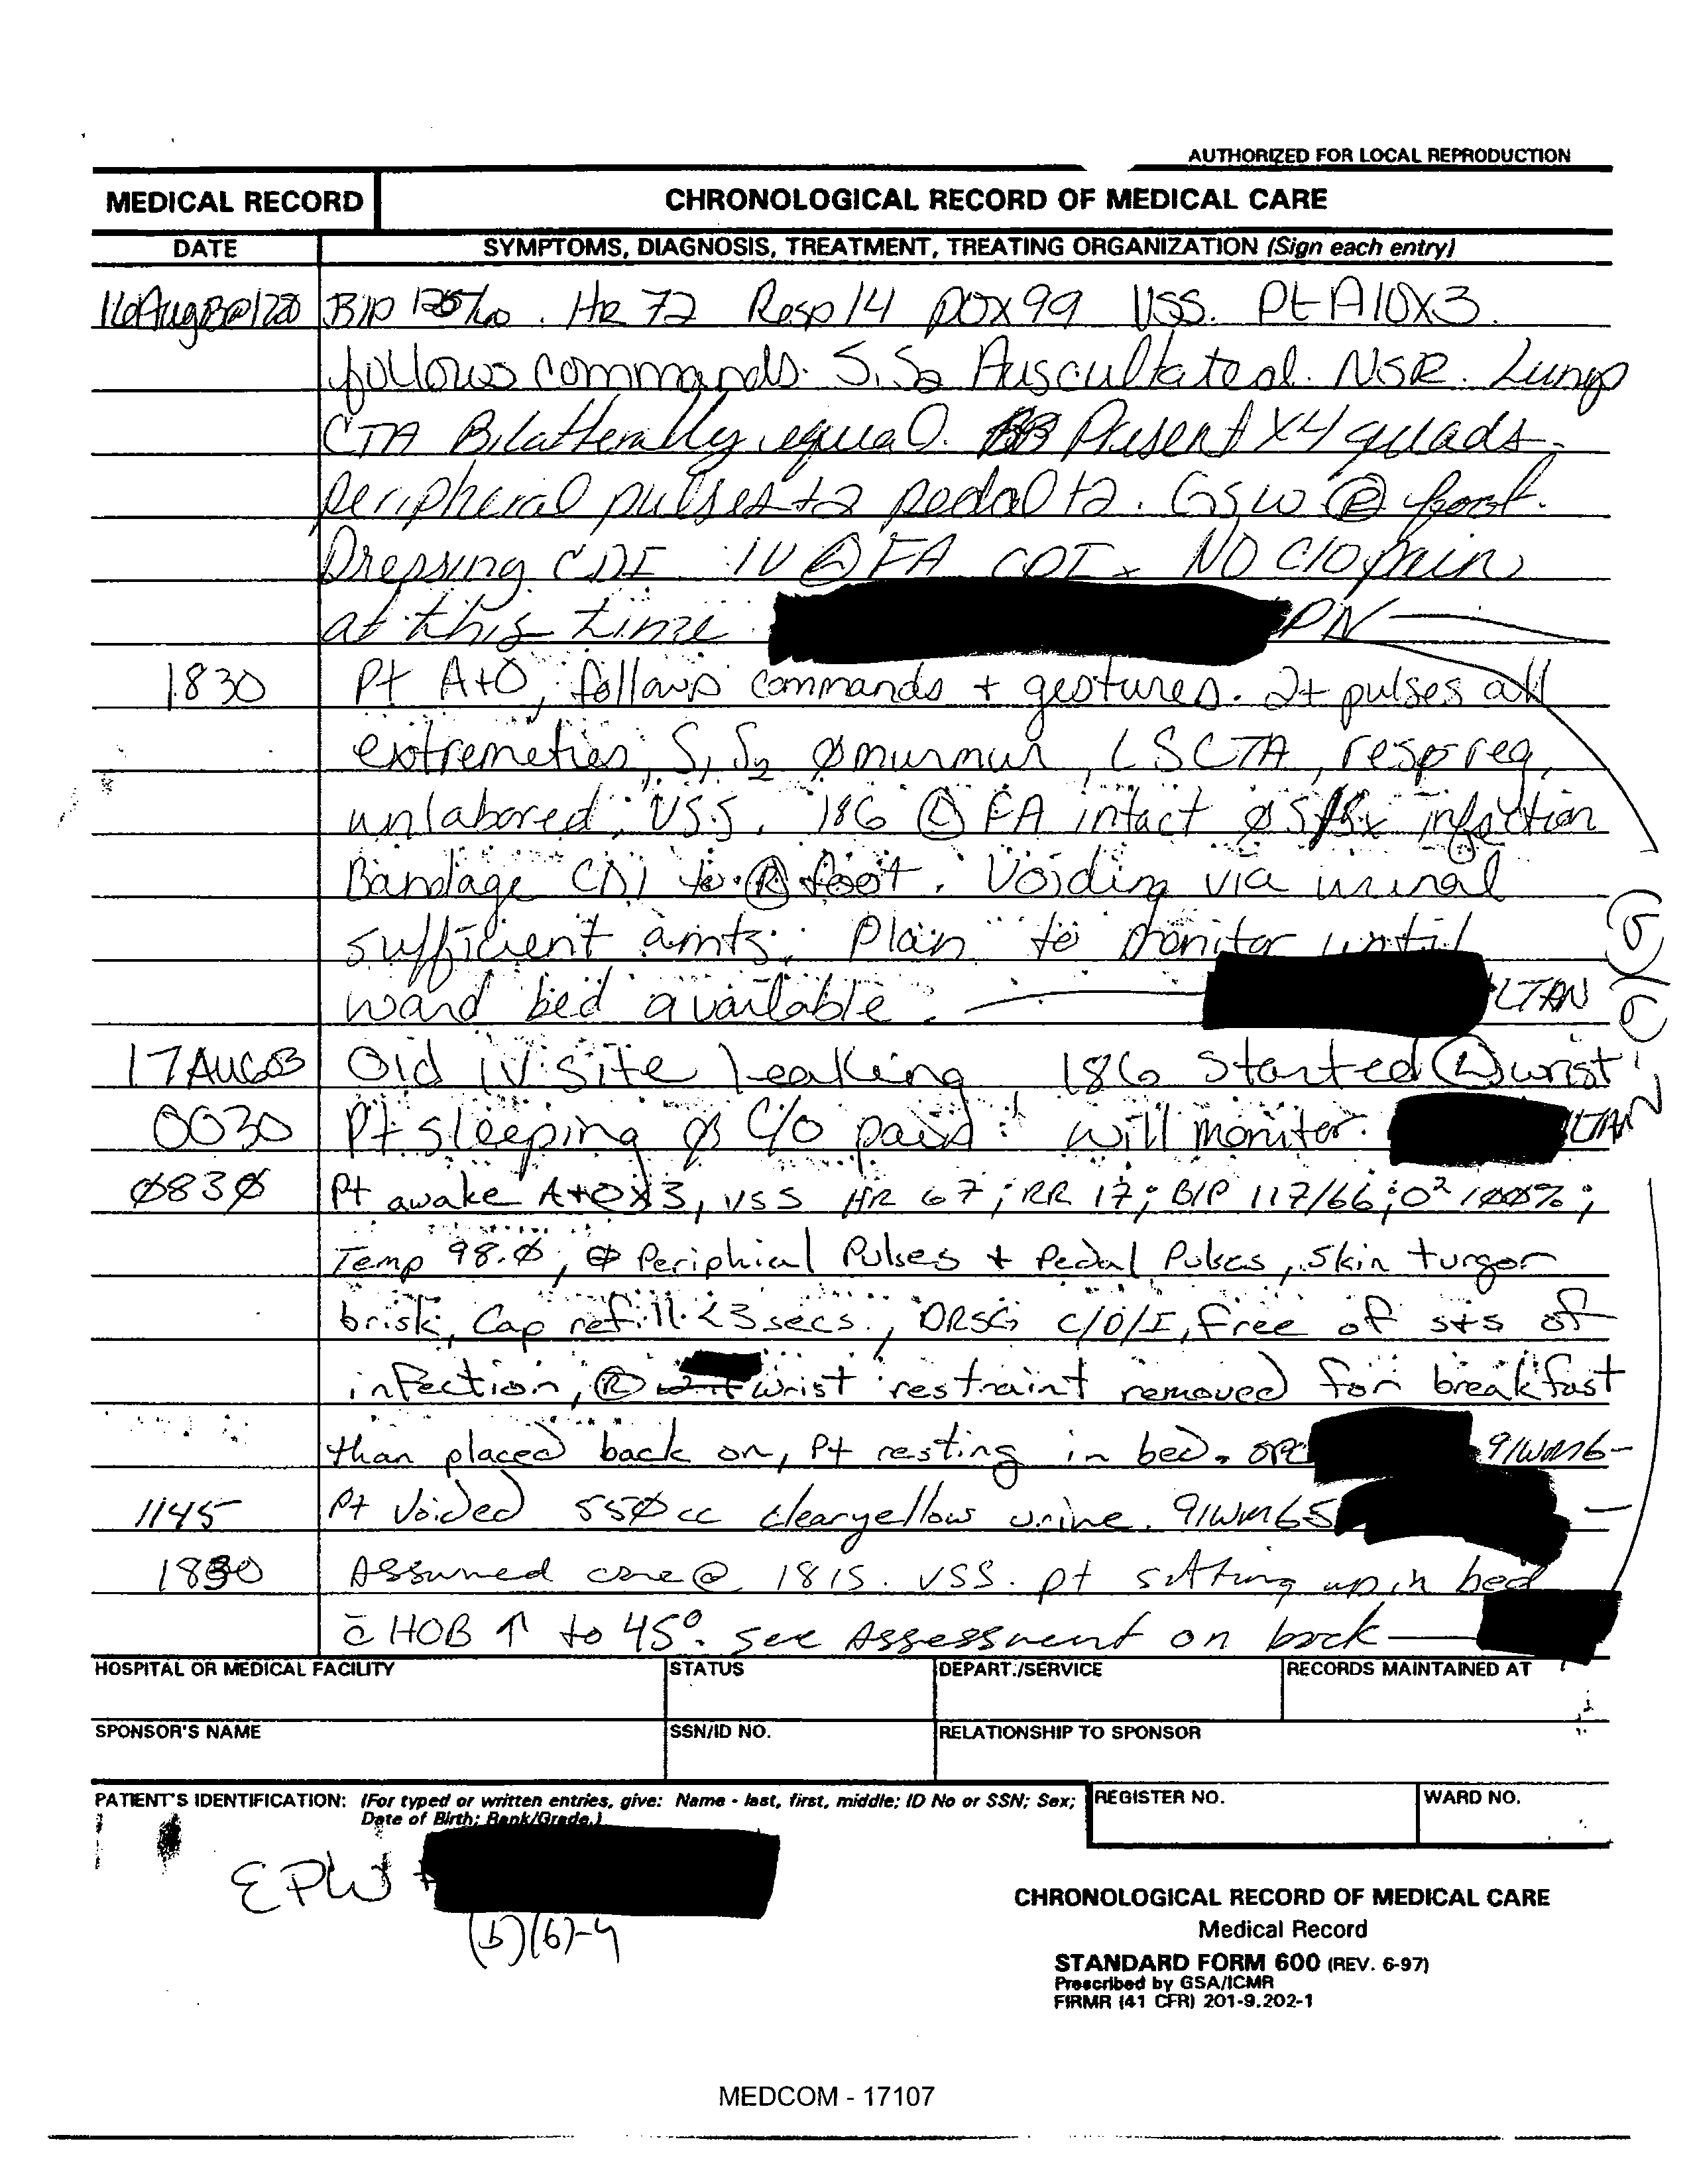 AUTHORIZED FOR LOCAL REPRODUCTION
MEDICAL RECORD
CHRONOLOGICAL RECORD OF MEDICAL CARE
DATE
SYMPTOMS, DIAGNOSIS, TREATMENT, TREATING ORGANIZATION (Sign each entry)
B/P HR 72 Resp 14 POX 99 VSS. Pt A/OX3.
follows commands. S1S2 Auscultated. NSR. Lungs
CTA Bilatterally, equal. Present X4 quads.
Peripheral pulses +2 pedal +2. GSW Ⓡ foot.
Dressing CDI. IV Ⓛ FA CDI. NO C/O pain
at this time PN
1830 Pt A+O, follows commands + gestures. 2+ pulses all
extremeties, S1 S2 Ø murmur, LSCTA, resp reg,
unlabored, VSS. 18G Ⓛ FA intact Ø S/Sx infection
Bandage CDI to Ⓡ foot. Voiding via urinal
sufficient amts. Plan to monitor until
ward bed available. LTAN
17AUG03 Old IV site leaking 18G started Ⓛ wrist
0030 Pt sleeping Ø C/O pain. will moniter. LTAN
(b)(6)-2
Ø83Ø Pt awake A+OX3, VSS HR 67; RR 17; B/P 117/66; O² 1ØØ%;
Temp 98.Ø, ⊕ Periphical Pulses + Pedal Pulses, skin turgor
brisk, Cap refill <3 secs., DRSG C/D/I, free of s+s of
infection, Ⓡ wrist restraint removed for breakfast
than placed back on, Pt resting in bed. SPC 91WM6
1145 Pt voided 55Øcc clearyellow urine. 91WM6
1830 Assumed care @ 1815. VSS. pt sitting up in bed
c̄ HOB ↑ to 45°. see Assessment on back
HOSPITAL OR MEDICAL FACILITY
STATUS
DEPART./SERVICE
RECORDS MAINTAINED AT
SPONSOR'S NAME
SSN/ID NO.
RELATIONSHIP TO SPONSOR
PATIENT'S IDENTIFICATION: (For typed or written entries, give: Name - last, first, middle; ID No or SSN; Sex;
Date of Birth; Rank/Grade.)
REGISTER NO.
WARD NO.
EPW #
(b)(6)-4
CHRONOLOGICAL RECORD OF MEDICAL CARE
Medical Record
STANDARD FORM 600 (REV. 6-97)
Prescribed by GSA/ICMR
FIRMR (41 CFR) 201-9.202-1
MEDCOM - 17107